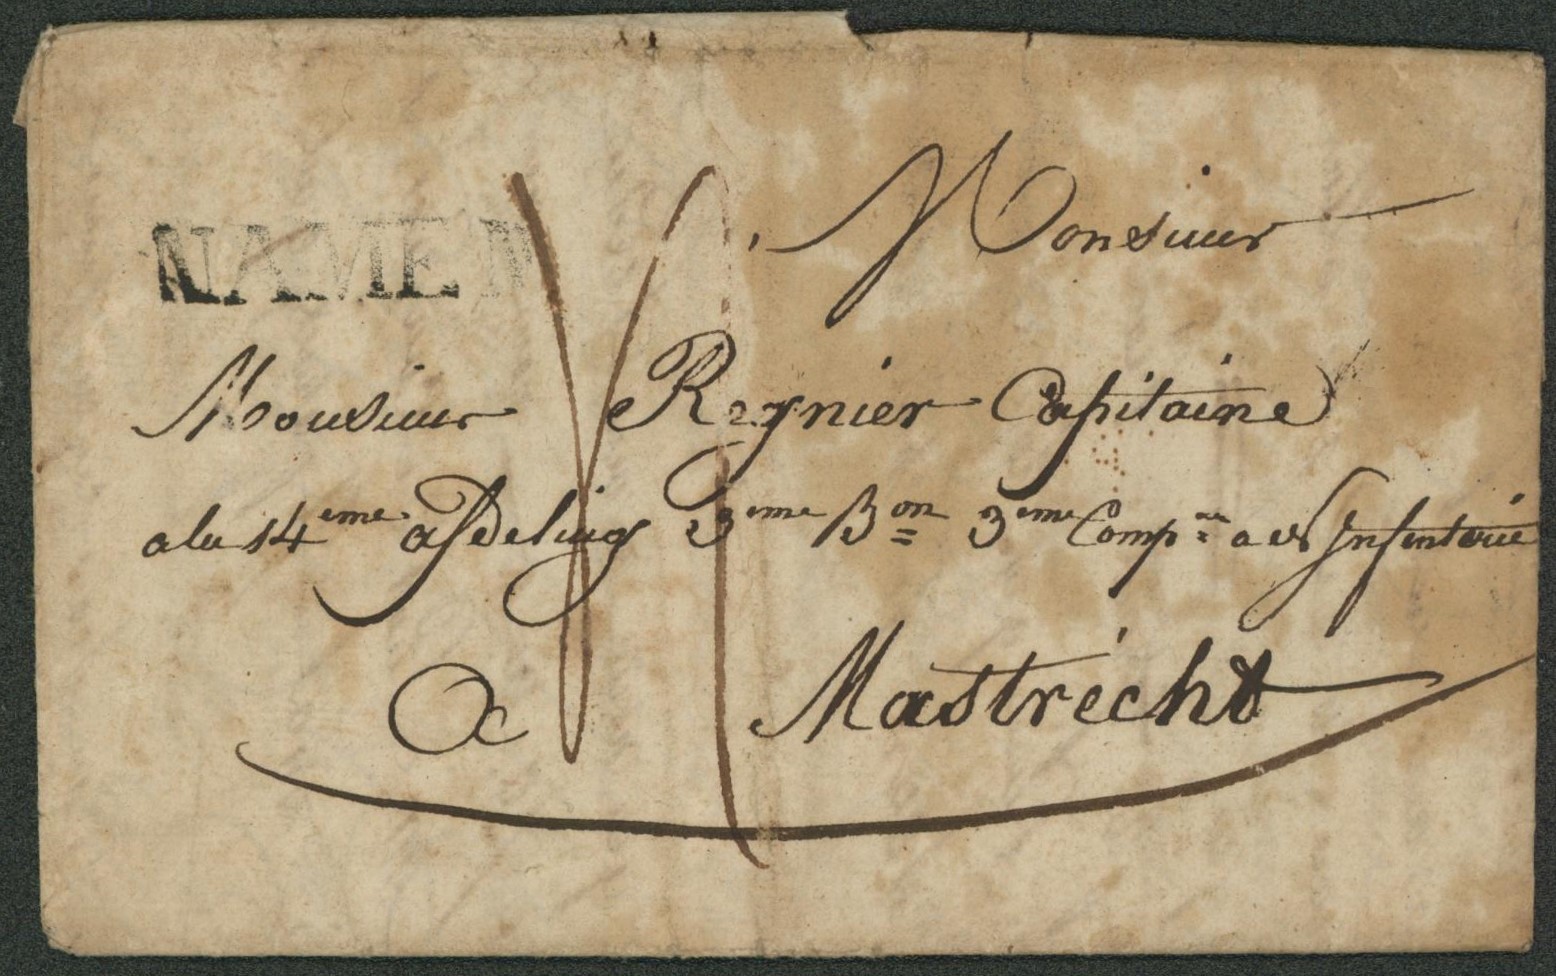 NAMEN
Monsieur
Monsieur Regnier Capitaine
a la 14eme afdeling 3eme Bon 3eme Compne Infenterie
a Mastrécht